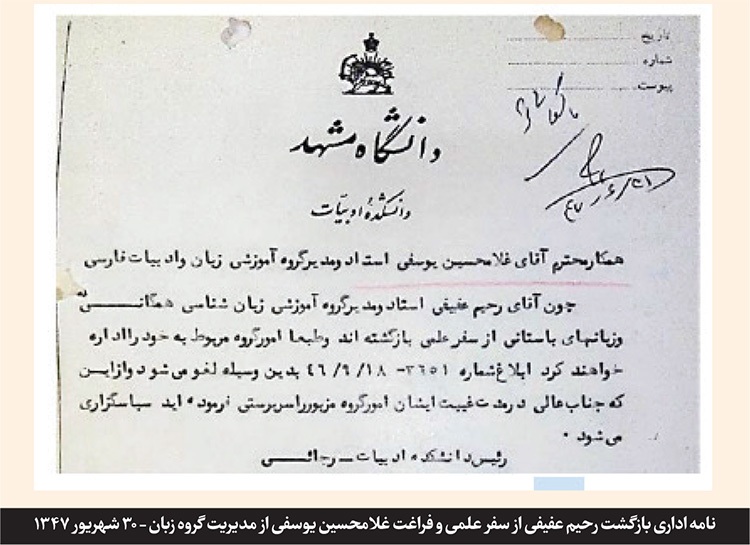 تاریخ
شماره
پیوست
۴۷/۶/۳۱
دانشگاه مشهد
دانشکدهٔ ادبیّات
همکار محترم آقای غلامحسین یوسفی استاد و مدیر گروه آموزشی زبان و ادبیات فارسی
چون آقای رحیم عفیفی استاد و مدیر گروه آموزشی زبان شناسی همگانی
و زبانهای باستانی از سفر علمی بازگشته اند و طبعا امور گروه مربوط به خود را اداره
خواهند کرد ابلاغ شماره ۳۶۵۱ - ۴۶/۹/۱۸ بدین وسیله لغو می شود و از این
که جنابعالی در مدت غیبت ایشان امور گروه مزبور را سرپرستی فرموده اید سپاسگزاری
می شود .
رئیس دانشکده ادبیات - رجائی
نامه اداری بازگشت رحیم عفیفی از سفر علمی و فراغت غلامحسین یوسفی از مدیریت گروه زبان - ۳۰ شهریور ۱۳۴۷